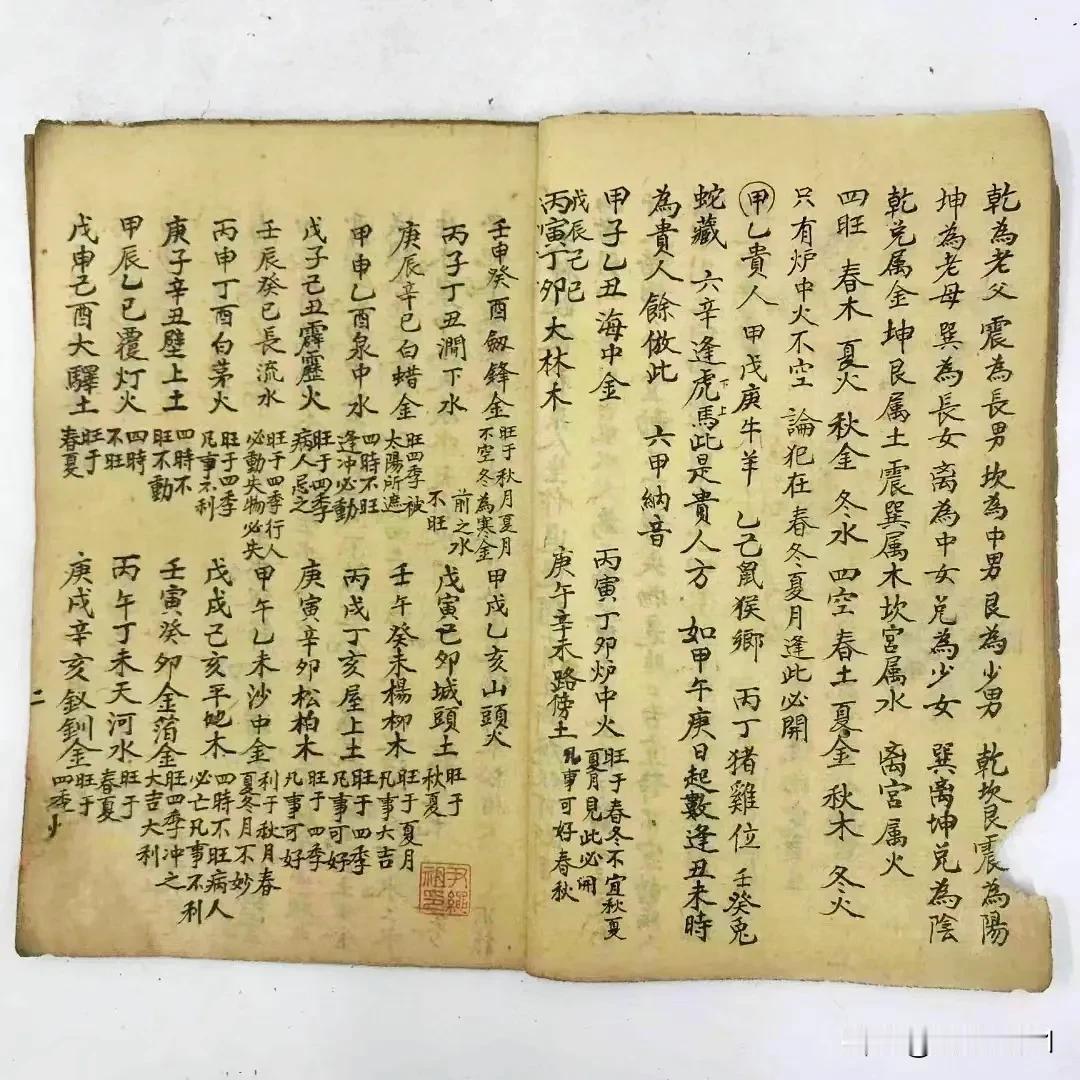 乾為老父 震為長男 坎為中男 艮為少男 乾坎艮震為陽
坤為老母 巽為長女 离為中女 兌為少女 巽离坤兌為陰
乾兌属金 坤艮属土 震巽属木 坎宮属水 离宮属火
四旺 春木 夏火 秋金 冬水 四空 春土 夏金 秋木 冬火
只有炉中火不空 論犯在春冬夏月逢此必開
甲乙貴人 甲戊庚牛羊 乙己鼠猴鄉 丙丁猪雞位 壬癸兎
蛇藏 六辛逢虎馬 此是貴人方 如甲午庚日起數逢丑未時
下上
為貴人餘倣此 六甲納音
甲子乙丑海中金 丙寅丁卯炉中火 旺于春冬不宜秋夏 夏月見此必開
戊辰己巳
丙寅丁卯大林木 庚午辛未路傍土 凡事可好春秋
壬申癸酉劔鋒金 旺于秋月夏月 不空冬為寒金 甲戌乙亥山頭火
丙子丁丑澗下水 前之水 不旺 戊寅己卯城頭土 旺于 秋夏
庚辰辛巳白蜡金 旺四季被 太陽所遮 壬午癸未楊柳木 旺于夏月 凡事大吉
甲申乙酉泉中水 四時不旺 逢冲必動 丙戌丁亥屋上土 旺于四季 凡事可好
戊子己丑霹靂火 旺于四季 病人忌之 庚寅辛卯松柏木 旺于四季 凡事可好
壬辰癸巳長流水 旺于四季行人 必動失物必失 甲午乙未沙中金 利于秋月春 夏冬月不妙
丙申丁酉白茅火 旺于四季 凡事不利 戊戌己亥平地木 四時不旺病人 必亡凡事不利
庚子辛丑壁上土 四時不 旺不動 壬寅癸卯金箔金 旺四季冲之 大吉大利
甲辰乙巳覆灯火 四時 不旺 丙午丁未天河水 旺于 春夏
戊申己酉大驛土 旺于 春夏 庚戌辛亥釵釧金 旺于 四季
二